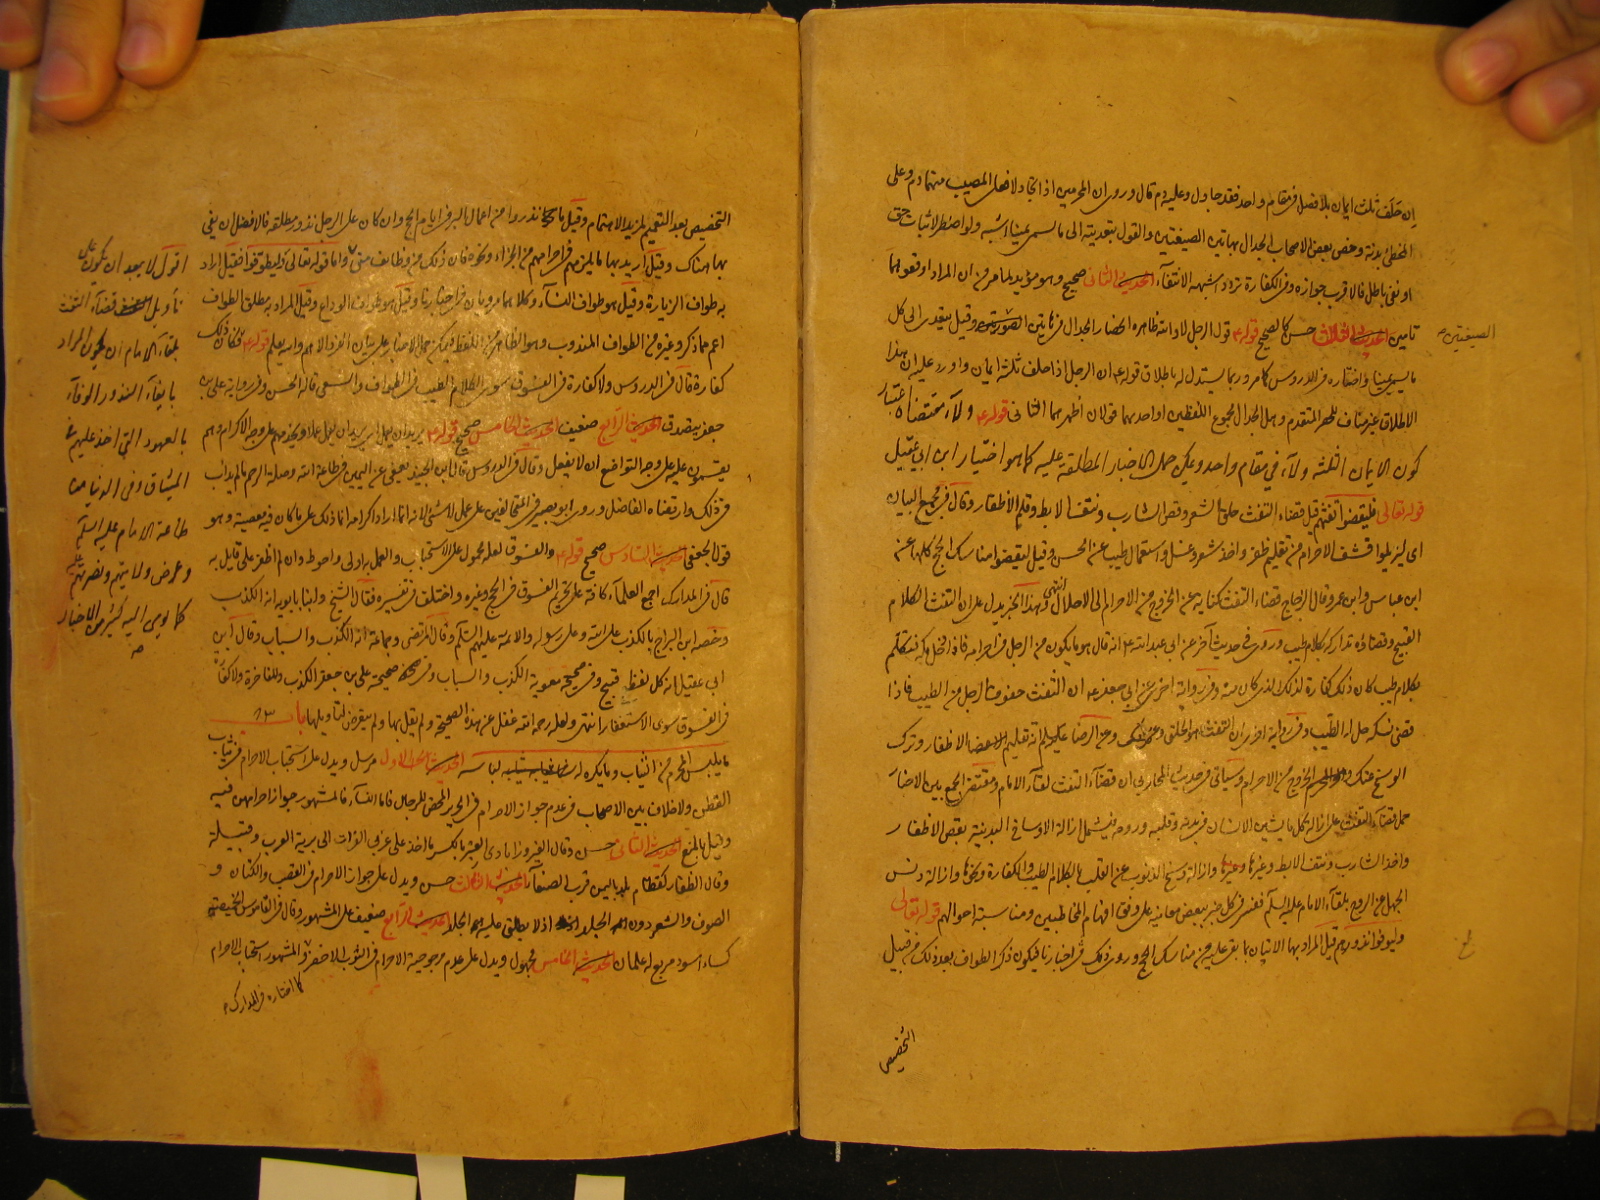 ان حلف ثلث ايمان بلا فصل في مقام واحد فقد جادل وعليه دم قال وروي ان المحرمين اذا تجادلا فعلى المصيب منهما دم وعلى
المخطئ بدنة وخص بعض الاصحاب الجدال بهاتين الصيغتين والقول بتعديته الى ما يسمى يمينا اشبه ولو اضطر لاثبات حق
او نفي باطل فالاقرب جوازه وفي الكفارة تردد اشبهه الانتفاء الحديث الثاني صحيح وهو مؤيد لما مر من ان المراد اوقعوهما
تامين الحديث الثالث حسن كالصحيح قوله ع قول الرجل لا والله ظاهره انحصار الجدال في هاتين الصورتين وقيل يتعدى الى كل
الصيغتين
ما يسمى يمينا واختاره في الدروس كما مر وربما يستدل له باطلاق قوله ع ان الرجل اذا حلف ثلثة ايمان واورد عليه ان هذا
الاطلاق غير مناف للحصر المتقدم وهل الجدال مجموع اللفظين او احدهما قولان اظهرهما الثاني قوله ع ولاء مقتضاه اعتبار
كون الايمان الثلثة ولاء في مقام واحد ويمكن حمل الاخبار المطلقة عليه كما هو اختيار ابن ابي عقيل
قوله تعالى فليقضوا تفثهم قيل قضاء التفث حلق الشعر وقص الشارب ونتف الابط وقلم الاظفار وقال في مجمع البيان
اي ليزيلوا قشف الاحرام من تقليم ظفر واخذ شعر وغسل واستعمال طيب عن الحسن وقيل ليقضوا مناسك الحج كلها عن
ابن عباس وابن عمر وقال الزجاج قضاء التفث كناية عن الخروج من الاحرام الى الاحلال انتهى وهذا الخبر يدل على ان التفث الكلام
القبيح وقضاؤه تداركه بكلام طيب وروي في حديث آخر عن ابي عبد الله ع انه قال هو ما يكون من الرجل في احرامه فاذا دخل مكة فتكلم
بكلام طيب كان ذلك كفارة لذلك الذي كان منه وفي رواية اخرى عن ابي جعفر ع ان التفث حفوف الرجل من الطيب فاذا
قضى نسكه حل له الطيب وفي رواية اخرى ان التفث هو الحلق وعن الرضا عليه السلم انه تقليم الاظفار وترك
الوسخ عنك والخروج من الاحرام وسياتي في حديث المحاربي ان قضاء التفث لقاء الامام ومقتضى الجمع بين الاخبار
حمل قضاء التفث على ازالة كل ما يشين الانسان في بدنه وقلبه وروحه فيشمل ازالة الاوساخ البدنية بقص الاظفار
واخذ الشارب ونتف الابط وغيرها وازالة وسخ الذنوب عن القلب بالكلام الطيب والكفارة ونحوها وازالة دنس
الجهل عن الروح بلقاء الامام عليه السلم ففسر في كل خبر ببعض معانيه على وفق افهام المخاطبين ومناسبة احوالهم قوله تعالى
وليوفوا نذورهم قيل المراد بها الاتيان بما بقي عليه من مناسك الحج وروي ذلك في اخبارنا فيكون ذكر الطواف بعد ذلك من قبيل
التخصيص
التخصيص بعد التعميم لمزيد الاهتمام وقيل ما نذروا من اعمال البر في ايام الحج وان كان على الرجل نذور مطلقة فالافضل ان يفي
بها هناك وقيل اريد بها ما يلزمهم في احرامهم من الجزاء ونحوه فان ذلك من وظايف منى واما قوله تعالى وليطوفوا فقيل اراد
به طواف الزيارة وقيل هو طواف النساء وكلاهما مرويان في اخبارنا وقيل هو طواف الوداع وقيل المراد به مطلق الطواف
اعم مما ذكر وغيره من الطواف المندوب وهو الظاهر من اللفظ فيمكن حمل الاخبار على بيان الفرد الاهم والله يعلم قوله ع فكان ذلك
كفارة قال في الدروس ولا كفارة في الفسوق سوى الكلام الطيب في الطواف والسعي قاله الحسن وفي رواية علي بن
جعفر يتصدق الحديث الرابع ضعيف الحديث الخامس صحيح قوله ع يريد ان يعمل اي يريد ان يعمل عملا ويخدمهم على وجه الاكرام وهم
يقسمون عليه على وجه التواضع ان لا يفعل وقال في الدروس قال ابن الجنيد يعفى عن اليمين في طاعة الله وصلة الرحم ما لم يدأب
في ذلك وارتضاه الفاضل وروى ابو بصير في المتحالفين على عمل لا شيء لانه انما اراد اكرامه انما ذلك على ما كان فيه معصية وهو
قول الجعفي الحديث السادس صحيح قوله ع والفسوق لعله محمول على الاستحباب والعمل به اولى واحوط وان لم اظفر على قايل به
قال في المدارك اجمع العلماء كافة على تحريم الفسوق في الحج وغيره واختلف في تفسيره فقال الشيخ وابنا بابويه انه الكذب
وخصه ابن البراج بالكذب على الله وعلى رسوله والائمة عليهم السلم وقال المرتضى وجماعة انه الكذب والسباب وقال ابن
ابي عقيل انه كل لفظ قبيح وفي صحيحة معوية الكذب والسباب وفي صحيحة علي بن جعفر الكذب والمفاخرة ولا كفارة
في الفسوق سوى الاستغفار انتهى ولعله رحمه الله غفل عن هذه الصحيحة ولم يقل بها ولم يتعرض لتاويلها باب
ما يلبس المحرم من الثياب وما يكره له لباسه الحديث الاول مرسل ويدل على استحباب الاحرام في ثياب
القطن ولا خلاف بين الاصحاب في عدم جواز الاحرام في الحرير المحض للرجال فاما النساء فالمشهور جواز احرامهن فيه
وقيل بالمنع الحديث الثاني حسن وقال الفيروزابادي العبر بالكسر ما اخذ على غربي الفرات الى برية العرب وقبيلة
وقال الظفار كقطام بلد باليمن قرب الصنعاء الحديث الثالث حسن ويدل على جواز الاحرام في القصب والكتان و
الصوف والشعر دون الجلد اذ لا يطلق عليه الجلد الحديث الرابع ضعيف على المشهور وقال في القاموس الخميصة
كساء اسود مربع له علمان الحديث الخامس مجهول ويدل على عدم مرجوحية الاحرام في الثوب الاخضر والمشهور استحباب الاحرام
كما اختاره في المدارك
اقول لا يبعد ان يكون على
تأويل قضاء التفث
بلقاء الامام ان يكون المراد
بايفاء النذور الوفاء
بالعهود التي اخذ عليهم في
الميثاق وفي الدنيا من
طاعة الامام عليه السلم
وعرض ولايتهم ونصرتهم عليه
كما يومي اليه كثير من الاخبار
منه